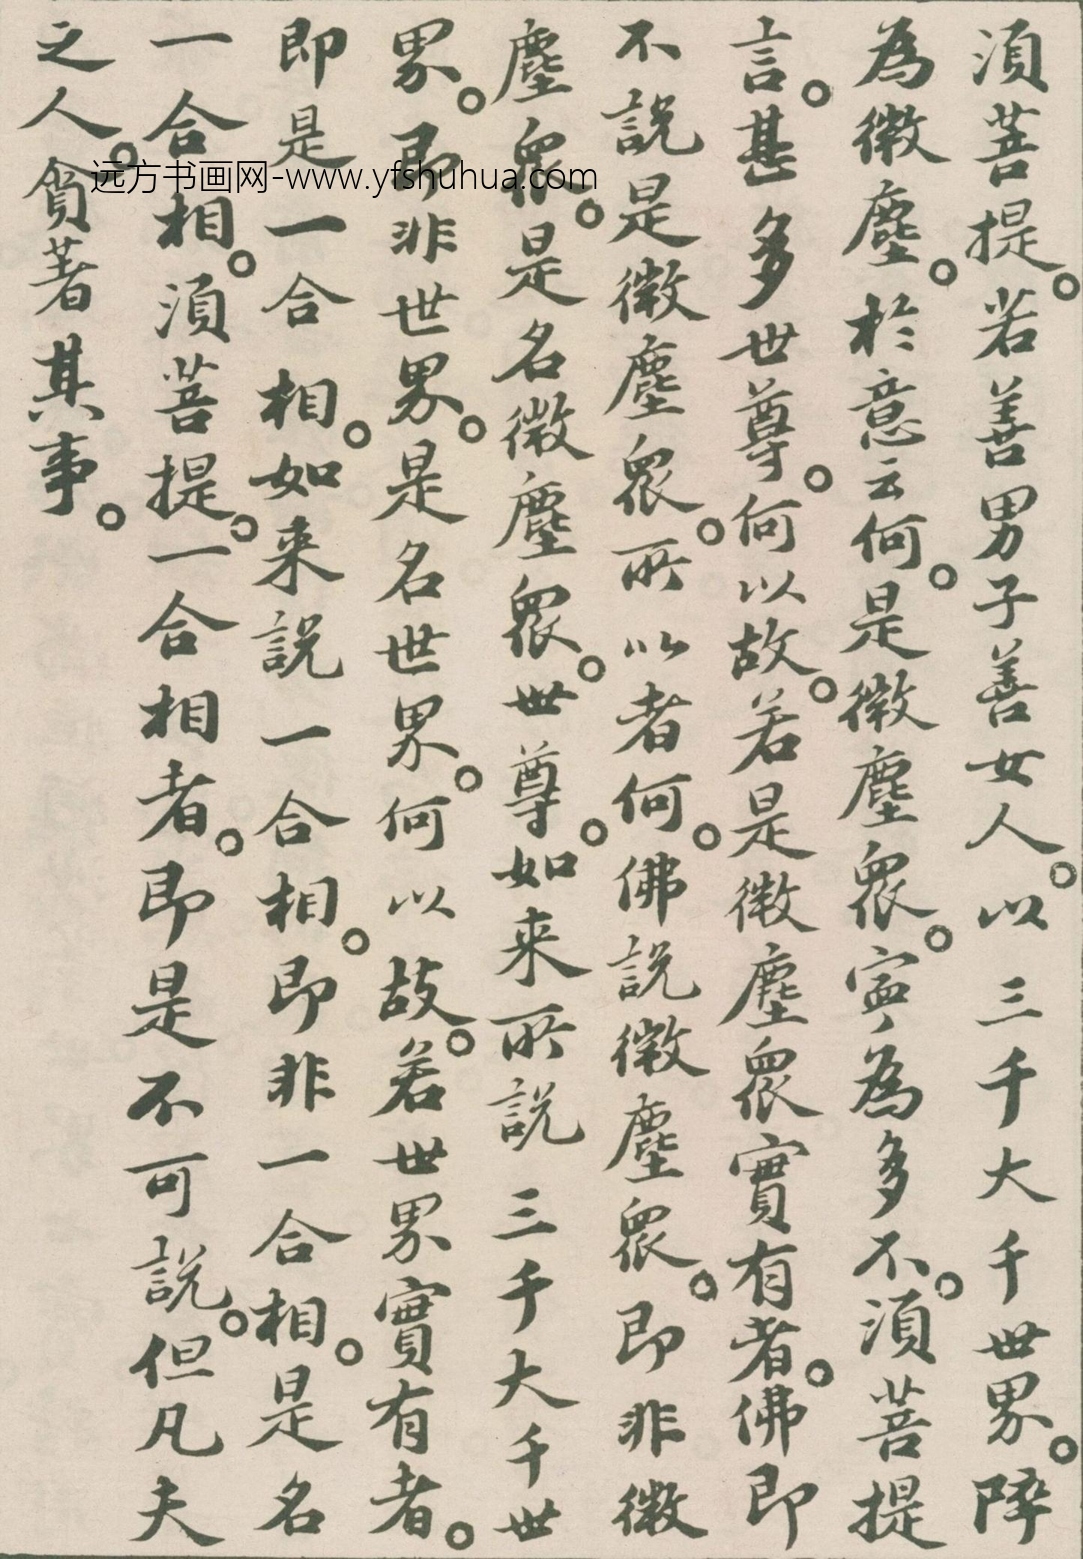 須菩提。若善男子善女人。以三千大千世界。碎
為微塵。於意云何。是微塵眾。寧為多不。須菩提
言。甚多世尊。何以故。若是微塵眾實有者。佛即
不說是微塵眾。所以者何。佛說微塵眾。即非微
塵眾。是名微塵眾。世尊。如来所說三千大千世
界。即非世界。是名世界。何以故。若世界實有者。
即是一合相。如来說一合相。即非一合相。是名
一合相。須菩提。一合相者。即是不可說。但凡夫
之人。貪著其事。
远方书画网-www.yfshuhua.com